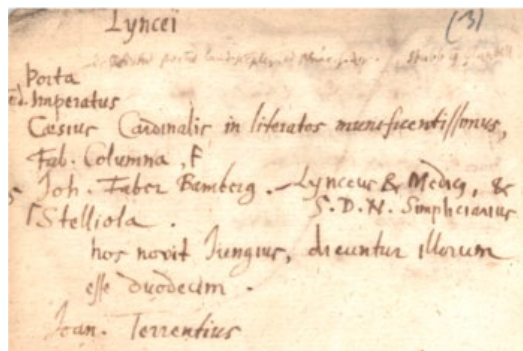 Lyncei (3)
Porta
Imperatus
Cæsius Cardinalis in literatos munificentissimus,
Fab. Columna, F
Joh. Faber Bamberg. Lynceus & Medicg, &
Stelliola. S. D. N. Simpliciarius
hos novit Jungius, dicuntur illorum
esse duodecim.
Joan. Terrentius